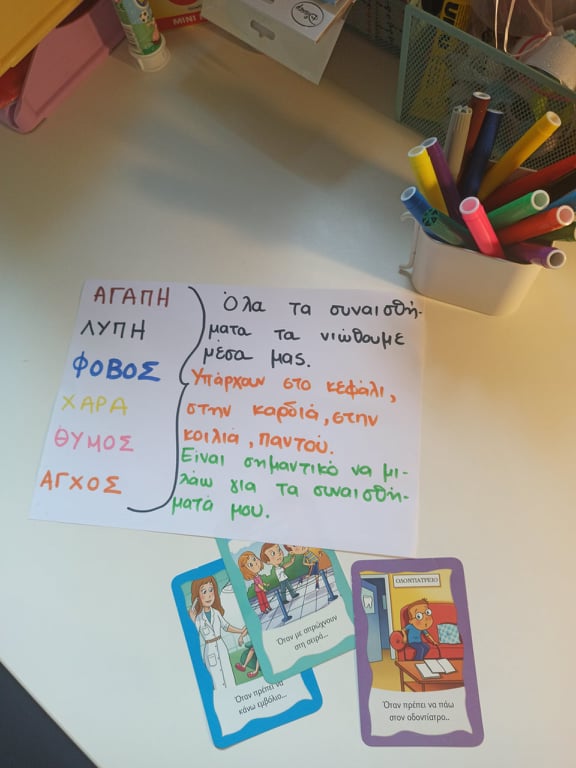 MINI M
Disney
ΑΓΑΠΗ
ΛΥΠΗ
ΦΟΒΟΣ
ΧΑΡΑ
ΘΥΜΟΣ
ΑΓΧΟΣ
Όλα τα συναισθή-
ματα τα νιώθουμε
μέσα μας.
Υπάρχουν στο κεφάλι,
στην καρδιά, στην
κοιλιά, παντού.
Είναι σημαντικό να μι-
λάω για τα συναισθή-
ματά μου.
Όταν πρέπει να
κάνω εμβόλιο...
Όταν με σπρώχνουν
στη σειρά...
ΟΔΟΝΤΙΑΤΡΕΙΟ
Όταν πρέπει να πάω
στον οδοντίατρο..